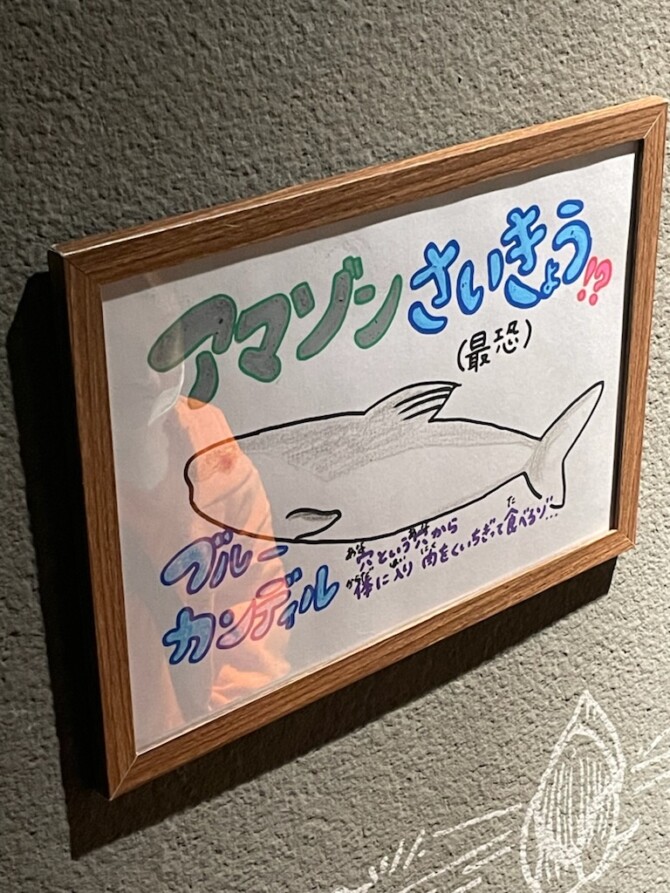 アマゾンさいきょう!?
(最恐)
ブルー
カンディル
穴という穴から
体に入り肉をくいちぎって食べるゾ…